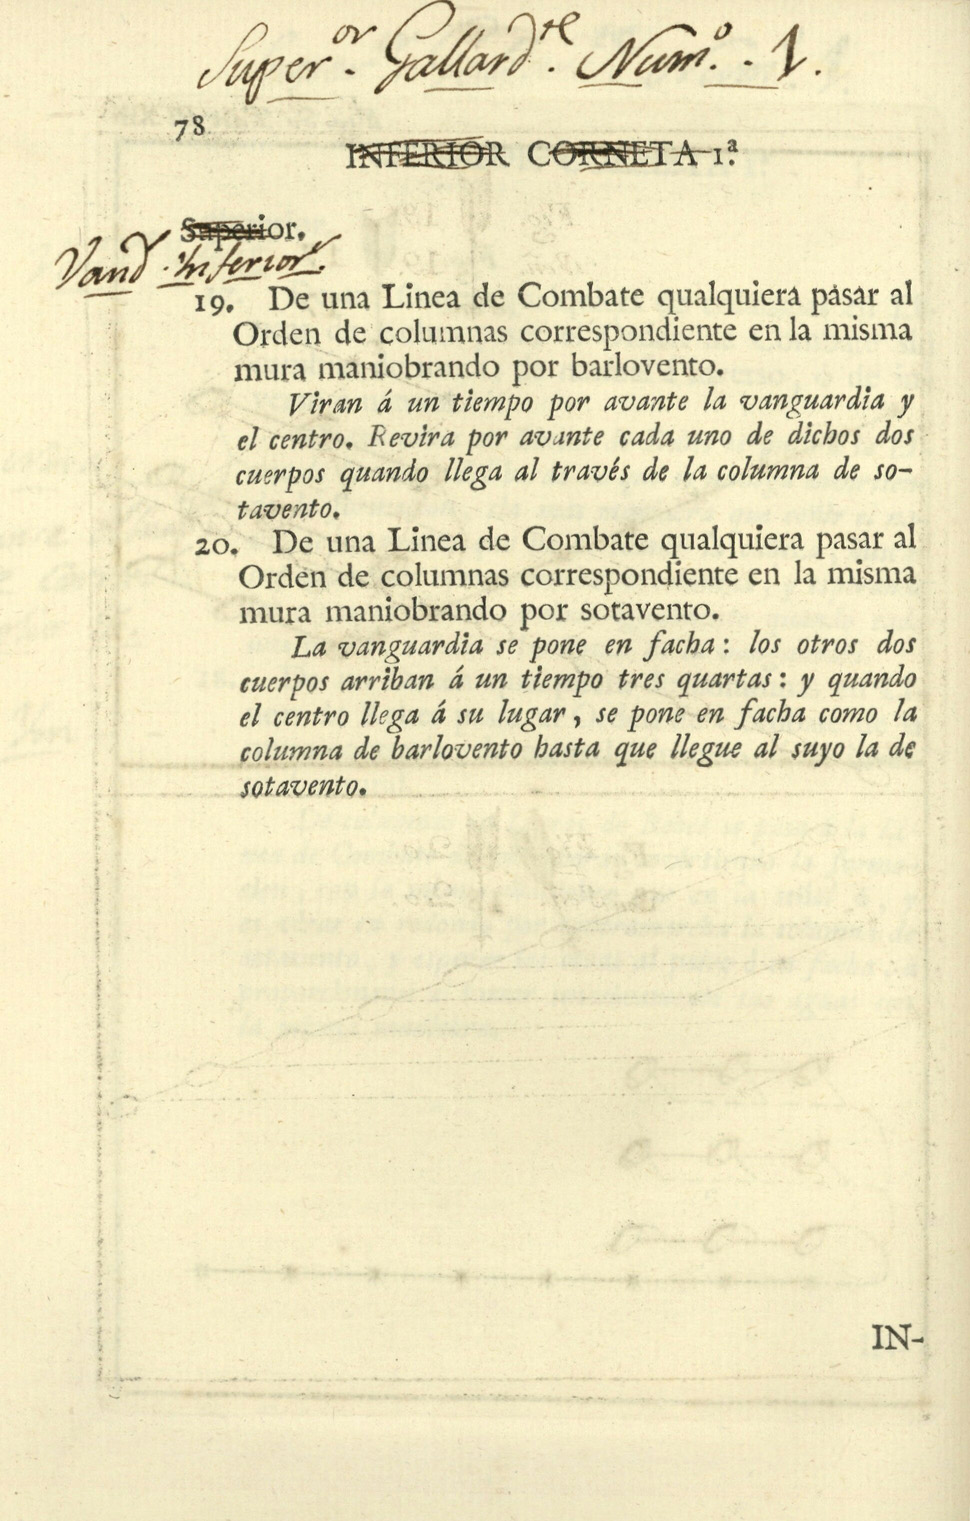 Super.or Gallard.te Num.o 1.
78
INFERIOR CORNETA 1.ª
Superior.
Vand.a Inferior.
19. De una Linea de Combate qualquiera pasar al
Orden de columnas correspondiente en la misma
mura maniobrando por barlovento.
Viran á un tiempo por avante la vanguardia y
el centro. Revira por avante cada uno de dichos dos
cuerpos quando llega al través de la columna de so-
tavento.
20. De una Linea de Combate qualquiera pasar al
Orden de columnas correspondiente en la misma
mura maniobrando por sotavento.
La vanguardia se pone en facha : los otros dos
cuerpos arriban á un tiempo tres quartas : y quando
el centro llega á su lugar , se pone en facha como la
columna de barlovento hasta que llegue al suyo la de
sotavento.
IN-